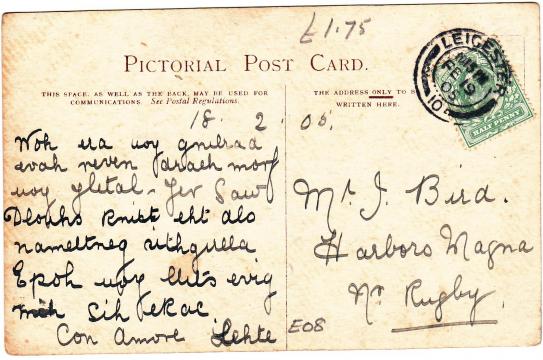 £1.75
PICTORIAL POST CARD.
THIS SPACE, AS WELL AS THE BACK, MAY BE USED FOR
COMMUNICATIONS. See Postal Regulations.
THE ADDRESS ONLY TO
WRITTEN HERE.
LEICESTER
FE 19
05
HALF PENNY
18. 2. 05.
Woh era uoy gnilrad
evah reven draeh morf
uoy yletal - Yev Saw
Dlouhs kniht eht dlo
nameltneg sithgulla
Epoh uoy llits evig
mih Sih ekac.
Con Amore Lehte
Mr J. Bird.
Harboro Magna
Nr Rugby.
E08